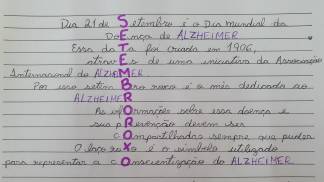 Dia 21 de Setembro é o Dia mundial da
DoEnça de ALZHEIMER
Essa daTa foi criada em 1906,
atravEs de uma iniciativa da Associação
Internacional de ALZHEIMER
Por isso setemBro roxo é o mês dedicado ao
ALZHEIMER
As infOrmações sobre essa doença e
sua pRevenção devem ser
COmpartilhadas sempre que puder
O laço roXo é o símbolo utilizado
para representar a cOnscientização do ALZHEIMER